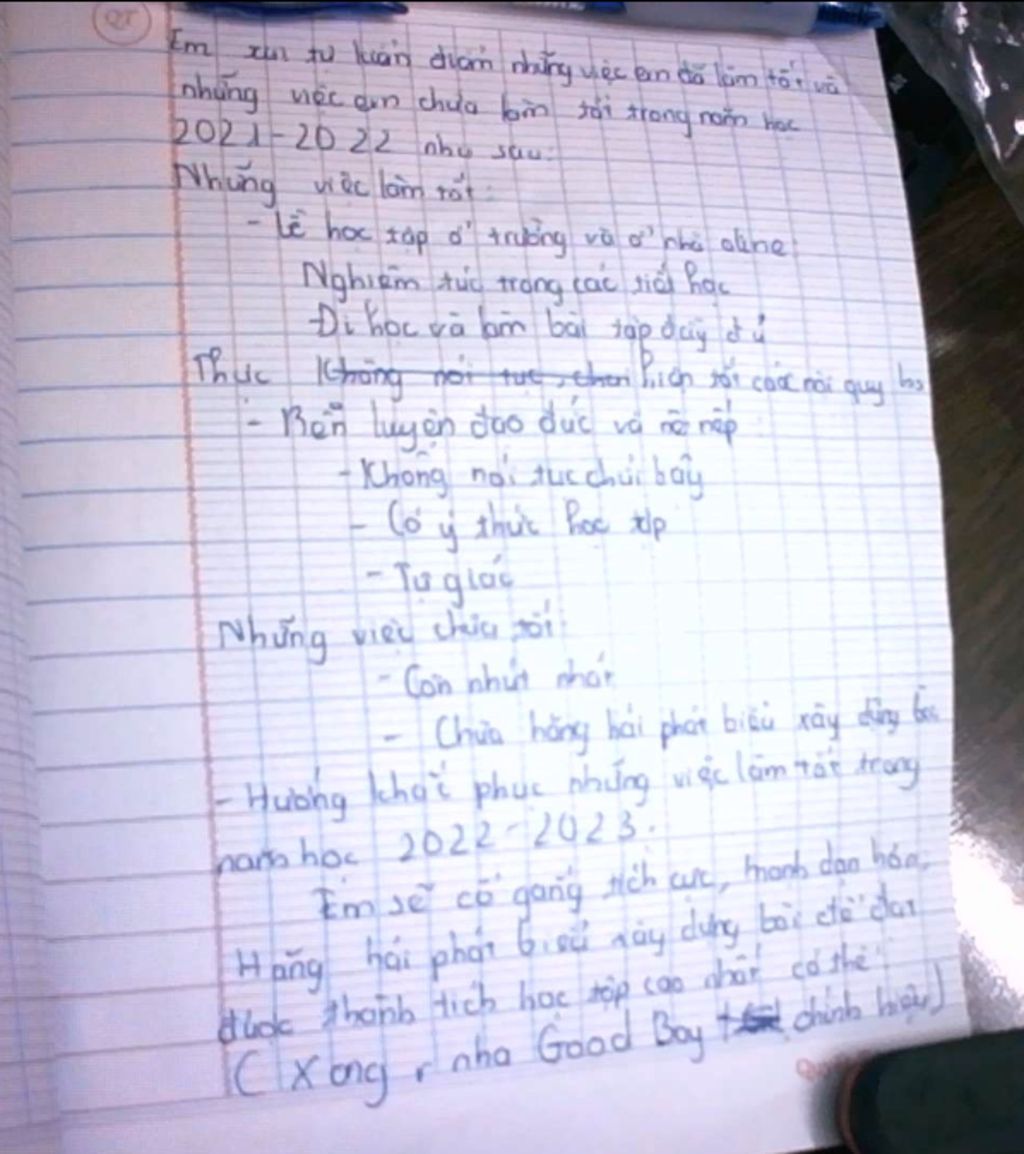 Em xin tự kiểm điểm những việc em đã làm tốt và
những việc em chưa làm tốt trong năm học
2021-2022 như sau:
Những việc làm tốt:
- Về học tập ở trường và ở nhà oline:
Nghiêm túc trong các tiết học
Đi học và làm bài tập đầy đủ
Thực Không nói tục, hiện tốt các nội quy
- Rèn luyện đạo đức và nề nếp
- Không nói tục chửi bậy
- Có ý thức học tập
- Tự giác
Những việc chưa tốt:
- Còn nhút nhát
- Chưa hăng hái phát biểu xây dựng bài
- Hướng khắc phục những việc làm tốt trong
năm học 2022-2023.
Em sẽ cố gắng tích cực, mạnh dạn hơn,
Hăng hái phát biểu xây dựng bài để đạt
được thành tích học tập cao nhất có thể
(Xong r nha Good Boy chính hiệu)